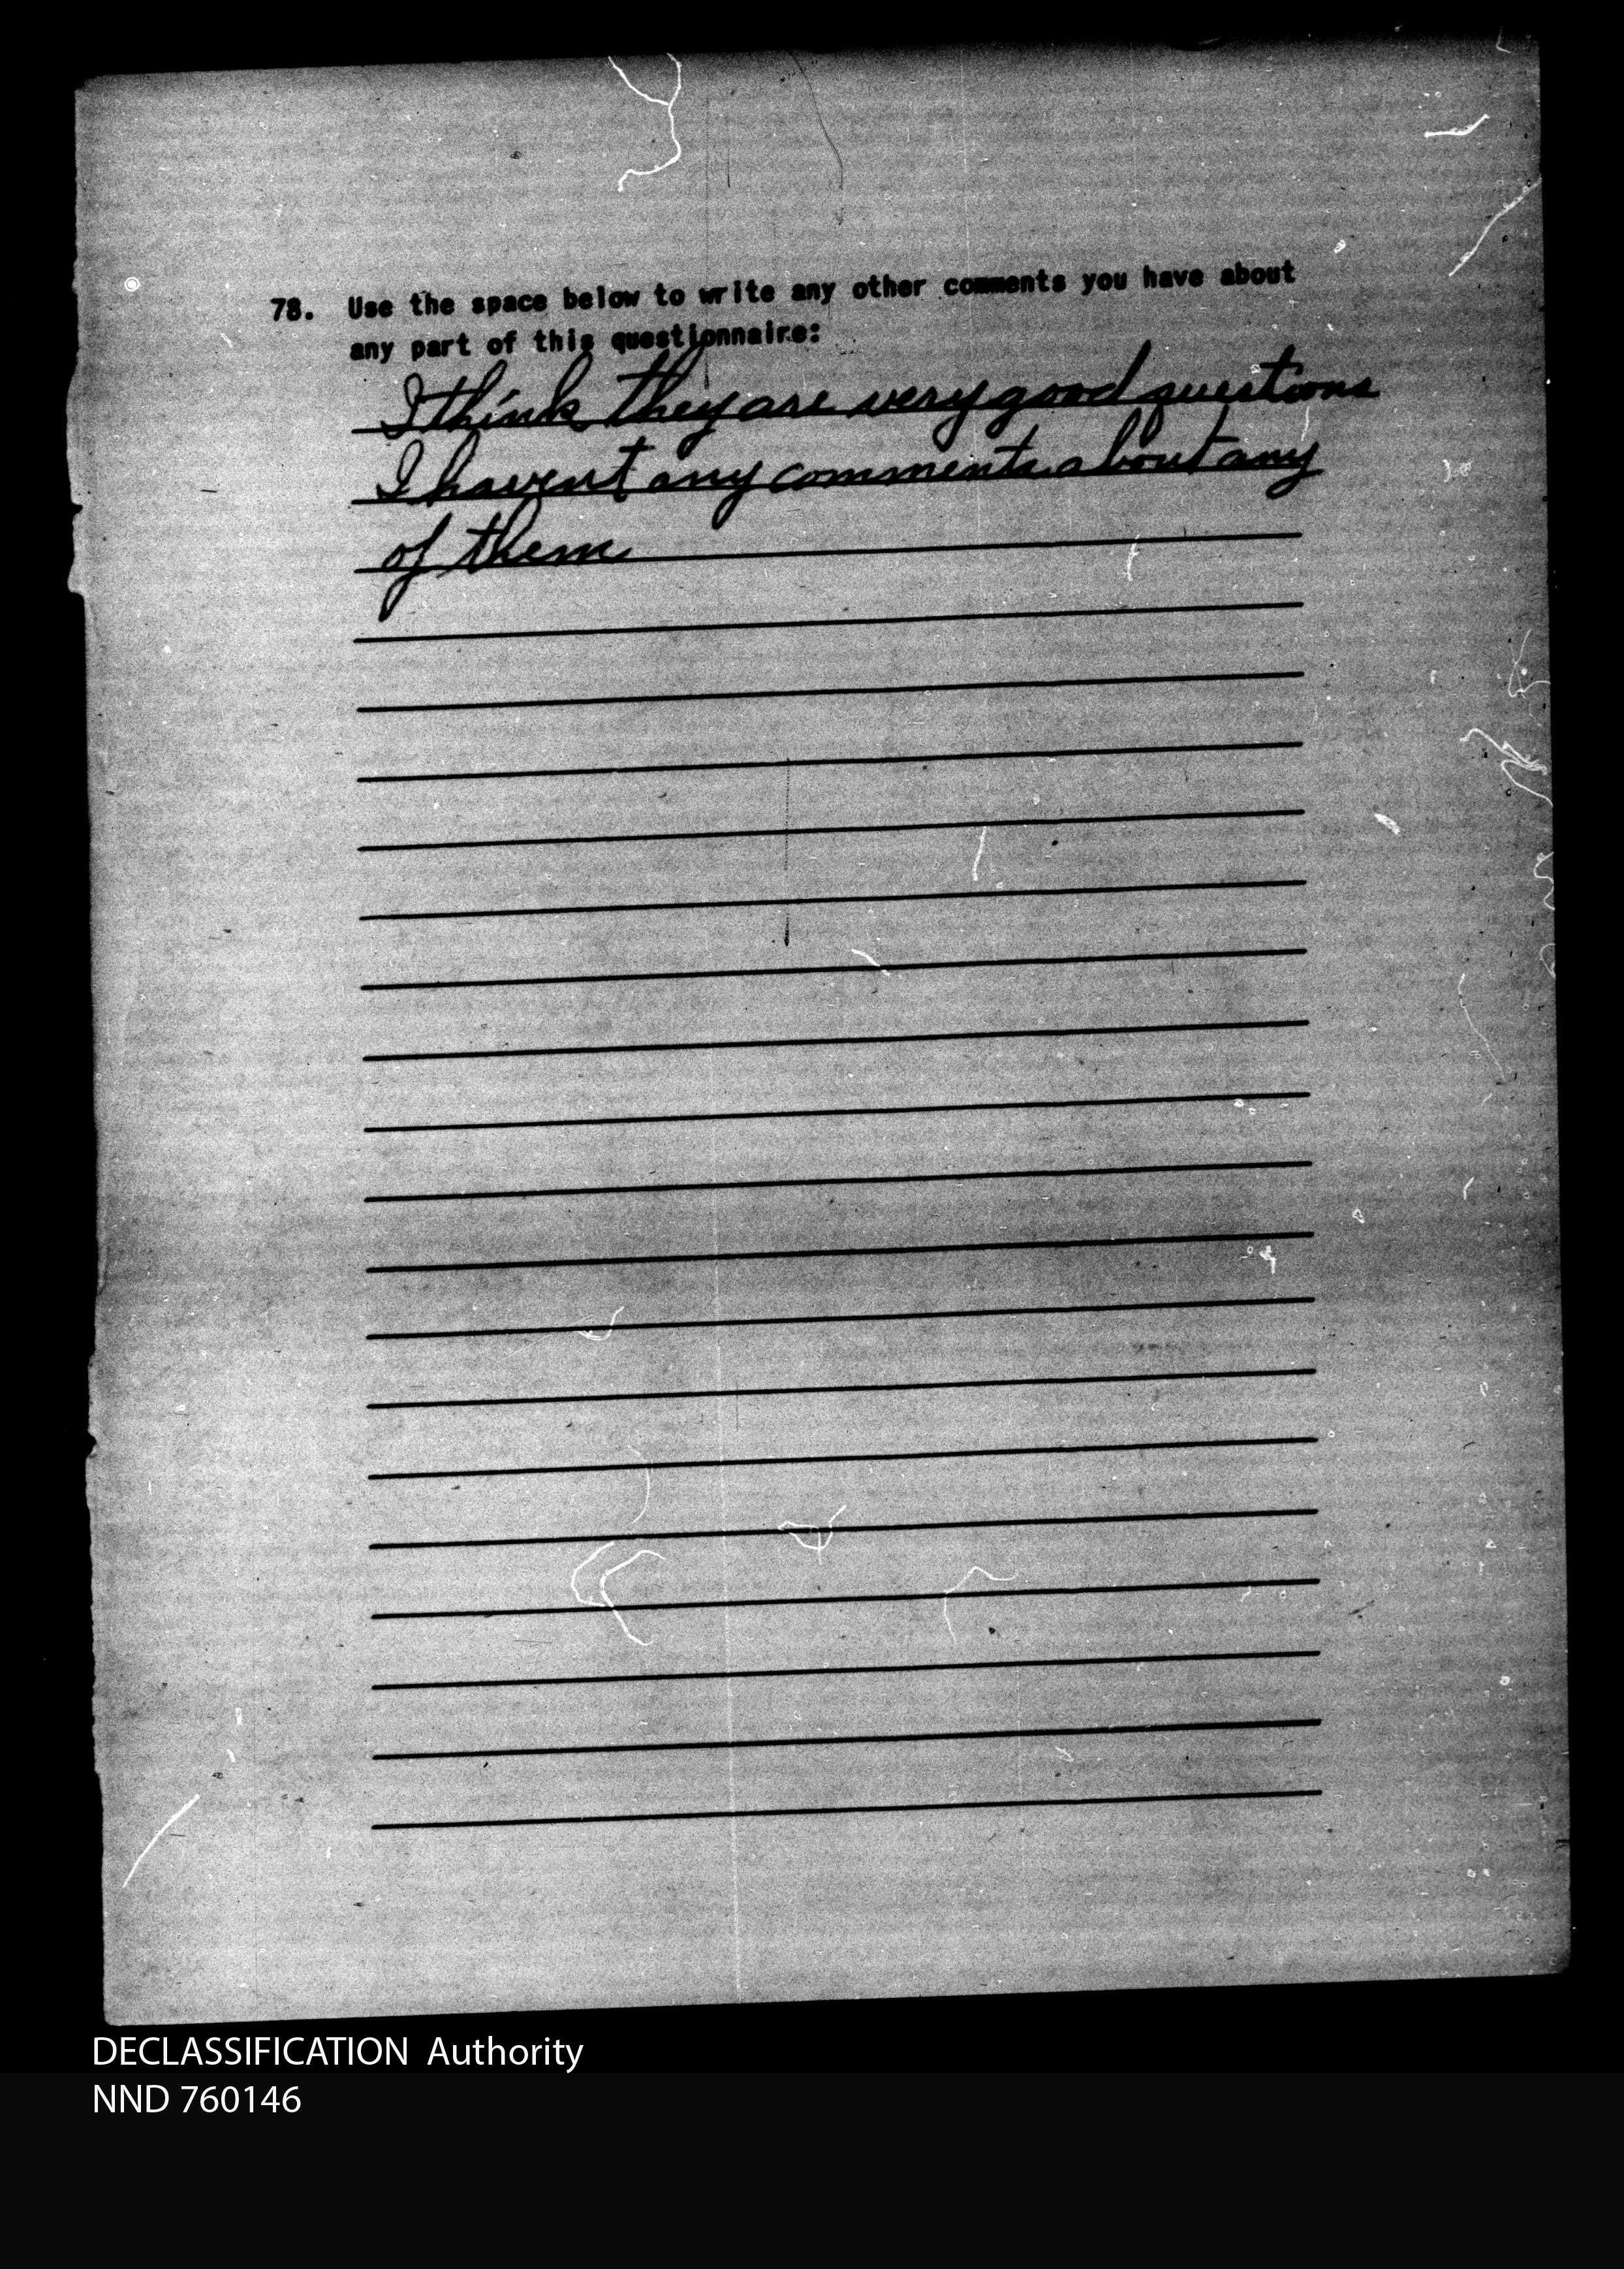 78. Use the space below to write any other comments you have about
any part of this questionnaire:
I think they are very good questions
I havent any comments about any
of them
DECLASSIFICATION Authority
NND 760146